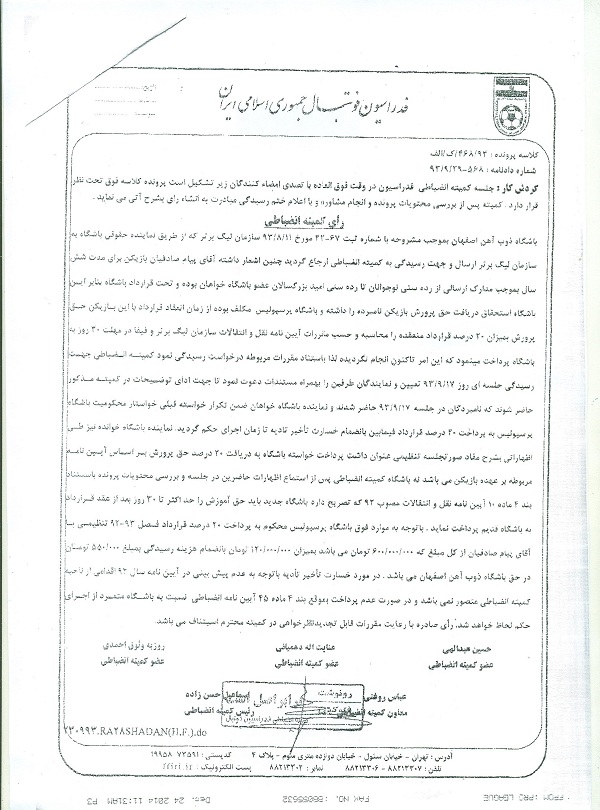 فدراسیون فوتبال جمهوری اسلامی ایران
کلاسه پرونده : ۴۶۸/۹۳/ک/الف
شماره دادنامه : ۵۶۸-۹۳/۹/۲۹
گردش کار : جلسه کمیته انضباطی فدراسیون در وقت فوق العاده با تصدی امضاء کنندگان زیر تشکیل است پرونده کلاسه فوق تحت نظر
قرار دارد . کمیته پس از بررسی محتویات پرونده و انجام مشاوره و با اعلام ختم رسیدگی مبادرت به انشاء رای بشرح آتی می نماید .
رای کمیته انضباطی
باشگاه ذوب آهن اصفهان بموجب مشروحه با شماره ثبت ۶۷-۴۲ مورخ ۹۳/۸/۱۱ سازمان لیگ برتر که از طریق نماینده حقوقی باشگاه به
سازمان لیگ برتر ارسال و جهت رسیدگی به کمیته انضباطی ارجاع گردید چنین اشعار داشته آقای پیام صادقیان بازیکن برای مدت شش
سال بموجب مدارک ارسالی از رده سنی نوجوانان تا رده سنی امید بزرگسالان عضو باشگاه خواهان بوده و تحت قرارداد باشگاه بنابر آیین
باشگاه استحقاق دریافت حق پرورش بازیکن نامبرده را داشته و باشگاه پرسپولیس مکلف بوده از زمان انعقاد قرارداد با این بازیکن حق
پرورش بمیزان ۲۰ درصد قرارداد منعقده را محاسبه و حسب مقررات آیین نامه نقل و انتقالات سازمان لیگ برتر و فیفا در مهلت ۳۰ روز به
باشگاه پرداخت مینمود که این امر تاکنون انجام نگردیده لذا باستناد مقررات مربوطه درخواست رسیدگی نمود کمیته انضباطی جهت
رسیدگی جلسه ای روز ۹۳/۹/۱۷ تعیین و نمایندگان طرفین را بهمراه مستندات دعوت نمود تا جهت ادای توضیحات در کمیته مذکور
حاضر شوند که نامبردگان در جلسه ۹۳/۹/۱۷ حاضر شدند و نماینده باشگاه خواهان ضمن تکرار خواسته قبلی خواستار محکومیت باشگاه
پرسپولیس به پرداخت ۲۰ درصد قرارداد فیمابین بانضمام خسارت تأخیر تادیه تا زمان اجرای حکم گردید. نماینده باشگاه خوانده نیز طی
اظهاراتی بشرح مفاد صورتجلسه تنظیمی عنوان داشت پرداخت خواسته باشگاه به دریافت ۲۰ درصد حق پرورش بر اساس آیین نامه
مربوطه بر عهده بازیکن می باشد نه باشگاه کمیته انضباطی پس از استماع اظهارات حاضرین در جلسه و بررسی محتویات پرونده باستناد
بند ۴ ماده ۱۰ آیین نامه نقل و انتقالات مصوب ۹۲ که تصریح دارد باشگاه جدید باید حق آموزش را حد اکثر تا ۳۰ روز بعد از عقد قرارداد
به باشگاه قدیم پرداخت نماید . باتوجه به موارد فوق باشگاه پرسپولیس محکوم به پرداخت ۲۰ درصد قرارداد فصل ۹۳-۹۲ تنظیمی با
آقای پیام صادقیان از کل مبلغ که ۶۰۰/۰۰۰/۰۰۰ تومان می باشد بمیزان ۱۲۰/۰۰۰/۰۰۰ تومان بانضمام هزینه رسیدگی بمبلغ ۵۵۰/۰۰۰ تومان
در حق باشگاه ذوب آهن اصفهان می باشد . در مورد خسارت تأخیر تأدیه باتوجه به عدم پیش بینی در آیین نامه سال ۹۲ اقدامی از ناحیه
کمیته انضباطی متصور نمی باشد و در صورت عدم پرداخت بموقع بند ۴ ماده ۴۵ آیین نامه انضباطی نسبت به باشگاه متمرد از اجرای
حکم لحاظ خواهد شد. رأی صادره با رعایت مقررات قابل تجدیدنظرخواهی در کمیته محترم استیناف می باشد.
حسین عبدالهی عنایت اله دهمیانی روزبه وثوق احمدی
عضو کمیته انضباطی عضو کمیته انضباطی عضو کمیته انضباطی
عباس روفتی اسماعیل حسن زاده
معاون کمیته انضباطی رئیس کمیته انضباطی
رونوشت
۲۳۰۹۹۳.RAYASHADAN(H.F.).do
آدرس : تهران - خیابان سئول - خیابان دوازده متری سوم - پلاک ۴ کدپستی : ۷۳۵۹۱ ۱۹۹۵۸
تلفن : ۸۸۲۱۳۳۰۷ - ۸۸۲۱۳۳۰۶ نمابر : ۸۸۲۱۳۳۰۲ پست الکترونیک : ffiri.ir
FROM :PRO LEAGUE FAX NO. :86055532 Dec. 24 2014 11:31AM P3